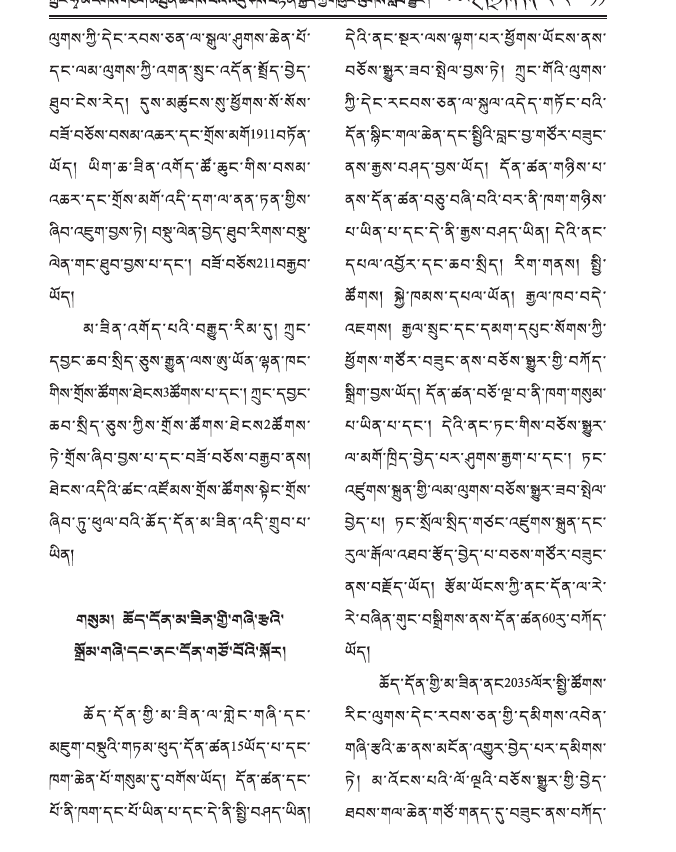 ལུགས་ཀྱི་དེང་རབས་ཅན་ལ་སྐུལ་ཤུགས་ཆེན་པོ་
དང་ལམ་ལུགས་ཀྱི་འགན་སྲུང་འདོན་སྤྲོད་བྱེད་
ཐུབ་ངེས་རེད། དུས་མཚུངས་སུ་ཕྱོགས་སོ་སོས་
བཟོ་བཅོས་བསམ་འཆར་དང་གྲོས་མགོ1911བཏོན་
ཡོད། ཡིག་ཆ་ཟིན་འགོད་ཚོ་ཆུང་གིས་བསམ་
འཆར་དང་གྲོས་མགོ་འདི་དག་ལ་ནན་ཏན་གྱིས་
ཞིབ་འཇུག་བྱས་ཏེ། བསྡུ་ལེན་བྱེད་ཐུབ་རིགས་བསྡུ་
ལེན་གང་ཐུབ་བྱས་པ་དང་། བཟོ་བཅོས211བརྒྱབ་
ཡོད།
མ་ཟིན་འགོད་པའི་བརྒྱུད་རིམ་དུ། ཀྲུང་
དབྱང་ཆབ་སྲིད་ཅུས་རྒྱུན་ལས་ཨུ་ཡོན་ལྷན་ཁང་
གིས་གྲོས་ཚོགས་ཐེངས3ཚོགས་པ་དང་། ཀྲུང་དབྱང་
ཆབ་སྲིད་ཅུས་ཀྱིས་གྲོས་ཚོགས་ཐེངས2ཚོགས་
ཏེ་གྲོས་ཞིབ་བྱས་པ་དང་བཟོ་བཅོས་བརྒྱབ་ནས།
ཐེངས་འདིའི་ཚང་འཛོམས་གྲོས་ཚོགས་སྟེང་གྲོས་
ཞིབ་ཏུ་ཕུལ་བའི་ཆོད་དོན་མ་ཟིན་འདི་གྲུབ་པ་
ཡིན།
གསུམ། ཆོད་དོན་མ་ཟིན་གྱི་གཞི་རྩའི་
སྒྲོམ་གཞི་དང་ནང་དོན་གཙོ་བོའི་སྐོར།
ཆོད་དོན་གྱི་མ་ཟིན་ལ་གླེང་གཞི་དང་
མཇུག་བསྡུའི་གཏམ་ཕུད་དོན་ཚན15ཡོད་པ་དང་
ཁག་ཆེན་པོ་གསུམ་དུ་བགོས་ཡོད། དོན་ཚན་དང་
པོ་ནི་ཁག་དང་པོ་ཡིན་པ་དང་དེ་ནི་སྤྱི་བཤད་ཡིན།
དེའི་ནང་སྔར་ལས་ལྷག་པར་ཕྱོགས་ཡོངས་ནས་
བཅོས་སྒྱུར་ཟབ་སྤེལ་བྱས་ཏེ། ཀྲུང་གོའི་ལུགས་
ཀྱི་དེང་རབས་ཅན་ལ་སྐུལ་འདེད་གཏོང་བའི་
དོན་སྙིང་གལ་ཆེན་དང་སྤྱིའི་བླང་བྱ་གཙོར་བཟུང་
ནས་རྒྱས་བཤད་བྱས་ཡོད། དོན་ཚན་གཉིས་པ་
ནས་དོན་ཚན་བཅུ་བཞི་བའི་བར་ནི་ཁག་གཉིས་
པ་ཡིན་པ་དང་དེ་ནི་རྒྱས་བཤད་ཡིན། དེའི་ནང་
དཔལ་འབྱོར་དང་ཆབ་སྲིད། རིག་གནས། སྤྱི་
ཚོགས། སྐྱེ་ཁམས་དཔལ་ཡོན། རྒྱལ་ཁབ་བདེ་
འཇགས། རྒྱལ་སྲུང་དང་དམག་དཔུང་སོགས་ཀྱི་
ཕྱོགས་གཙོར་བཟུང་ནས་བཅོས་སྒྱུར་གྱི་བཀོད་
སྒྲིག་བྱས་ཡོད། དོན་ཚན་བཅོ་ལྔ་བ་ནི་ཁག་གསུམ་
པ་ཡིན་པ་དང་། དེའི་ནང་ཏང་གིས་བཅོས་སྒྱུར་
ལ་མགོ་ཁྲིད་བྱེད་པར་ཤུགས་རྒྱག་པ་དང་། ཏང་
འཛུགས་སྐྲུན་གྱི་ལམ་ལུགས་བཅོས་སྒྱུར་ཟབ་སྤེལ་
བྱེད་པ། ཏང་སྲོལ་སྲིད་གཙང་འཛུགས་སྐྲུན་དང་
རུལ་རྒོལ་འཐབ་རྩོད་བྱེད་པ་བཅས་གཙོར་བཟུང་
ནས་བརྗོད་ཡོད། རྩོམ་ཡོངས་ཀྱི་ནང་དོན་ལ་རེ་
རེ་བཞིན་གུང་བསྒྲིགས་ནས་དོན་ཚན60རུ་བཀོད་
ཡོད།
ཆོད་དོན་གྱི་མ་ཟིན་ནང2035ལོར་སྤྱི་ཚོགས་
རིང་ལུགས་དེང་རབས་ཅན་གྱི་དམིགས་འབེན་
གཞི་རྩའི་ཆ་ནས་མངོན་འགྱུར་བྱེད་པར་དམིགས་
ཏེ། མ་འོངས་པའི་ལོ་ལྔའི་བཅོས་སྒྱུར་གྱི་བྱེད་
ཐབས་གལ་ཆེན་གཙོ་གནད་དུ་བཟུང་ནས་བཀོད་